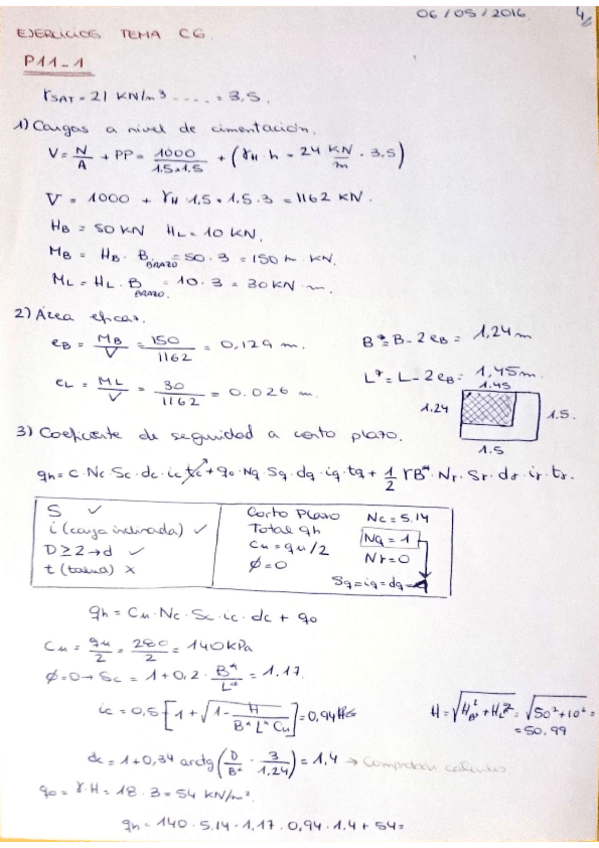 06/05/2016
EJERCICIOS TEMA C6.
P11-1
γSAT = 21 KN/m³ ..... = 3.5.
1) Cargas a nivel de cimentación.
V = N/A + PP = 1000/1.5×1.5 + (γH · h = 24 KN/m · 3.5)
V = 1000 + γH 1.5 · 1.5 · 3 = 1162 KN.
HB = 50 KN HL = 10 KN.
MB = HB · B BRAZO = 50 · 3 = 150 m · KN.
ML = HL · B BRAZO = 10 · 3 = 30 KN · m.
2) Área eficaz.
eB = MB/V = 150/1162 = 0,129 m. B* = B - 2eB = 1,24m
eL = ML/V = 30/1162 = 0.026 m. L* = L - 2eB = 1,45m.
1.45
1.24
1.5.
1.5
3) Coeficiente de seguridad a corto plazo.
qh = C · Nc · Sc · dc · ic · tc + qo · Nq · Sq · dq · iq · tq + 1/2 γB* · Nγ · Sγ · dγ · iγ · tγ.
S ✓
i (carga inclinada) ✓
D ≥ 2 → d ✓
t (talud) ×
Corto Plazo Nc = 5.14
Total qh Nq = 1
Cu = qu/2 Nγ = 0
φ = 0 Sq = iq = dq = 1
qh = Cu · Nc · Sc · ic · dc + qo
Cu = qu/2 = 280/2 = 140 kPa
φ = 0 → Sc = 1 + 0,2 · B*/L* = 1.17.
ic = 0,5 [1 + √1 - H/B* L* Cu] = 0,94 H = √HB² + HL² = √50² + 10² =
= 50.99
dc = 1 + 0,34 arctg (D/B* · 3/1,24) = 1,4 → Comprobar calculos
qo = γ · H = 18 · 3 = 54 KN/m².
qh = 140 · 5.14 · 1,17 · 0,94 · 1.4 + 54 =